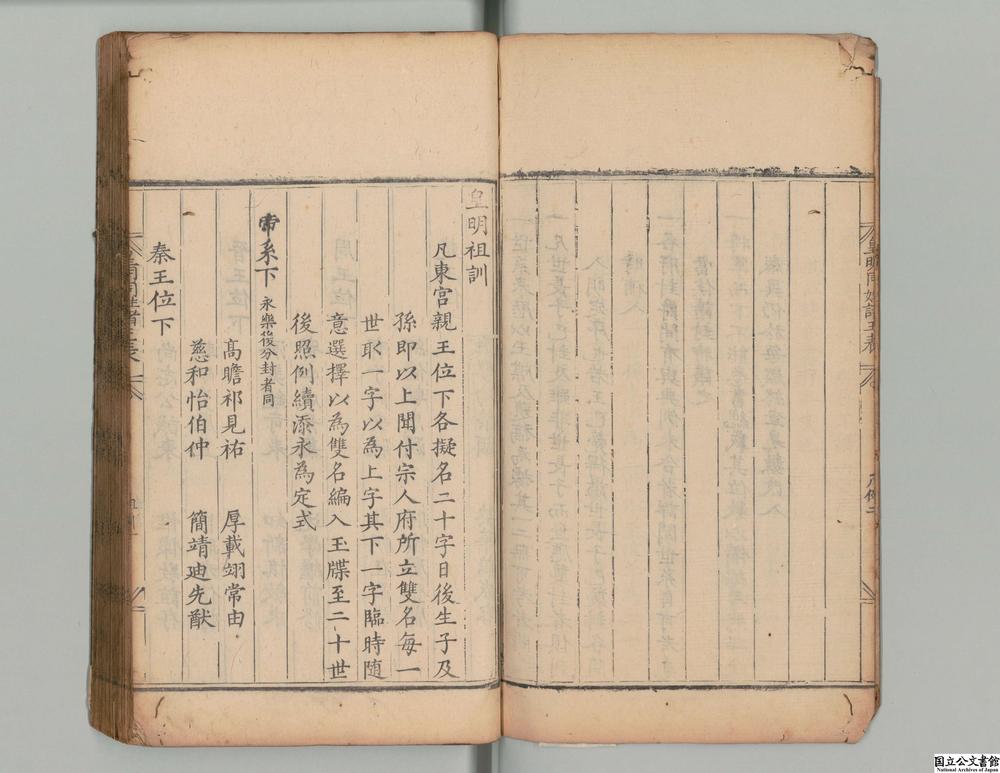 皇明祖訓
凡東宮親王位下各擬名二十字日後生子及
孫即以上聞付宗人府所立雙名每一
世取一字以為上字其下一字臨時隨
意選擇以為雙名編入玉牒至二十世
後照例續添永為定式
帝系下 永樂後分封者同
高瞻祁見祐 厚載翊常由
慈和怡伯仲 簡靖迪先猷
秦王位下
皇明同姓諸王表
国立公文書館
National Archives of Japan